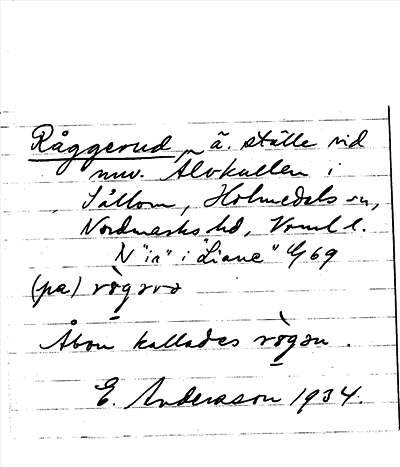 Råggerud, ä. ställe vid
nuv. Älvkullen i
Sållom, Holmedals sn,
Nordmarks hd, Vrml l.
N "in" i "Liane" G 69
(pa) rògərə
Åbon kallades rògən.
E. Andersson 1934.